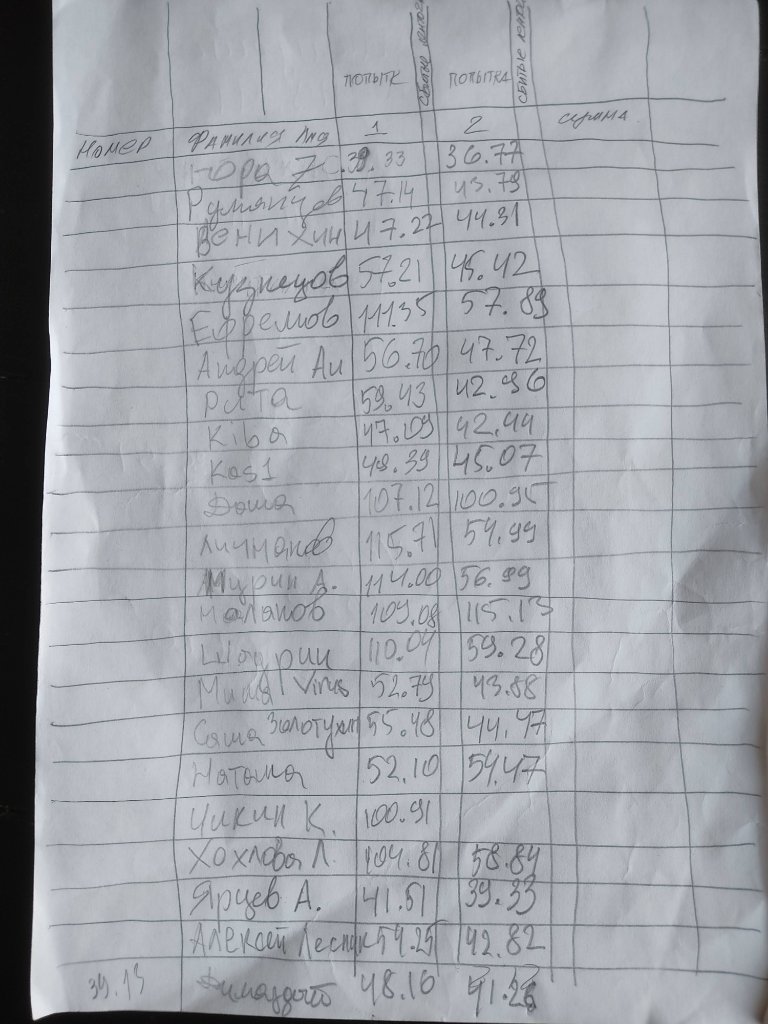 ПОПЫТК сбитые ПОПЫТКА сбитые
НОМЕР Фамилия 1 2 сумма
Юра 39.33 36.77
Румянцев 47.14 43.79
ВЕНИХИН 47.22 44.31
Кузнецов 57.21 45.42
Ефремов 111.35 57.89
Андрей Ан 56.70 47.72
Рата 59.43 42.96
Kiba 47.09 42.44
Kos1 48.39 45.07
Даша 107.12 100.95
Личманов 115.71 54.99
Мурин А. 114.00 56.99
Маляков 109.08 115.13
Шаурин 110.04 59.28
Миша Virus 52.79 43.88
Саша Золотухин 55.48 44.47
Наташа 52.10 54.47
Чикин К. 100.91
Хохлова Л. 104.81 58.84
Ярцев А. 41.51 39.33
Алексей 54.25 42.82
39.13 48.10 41.26